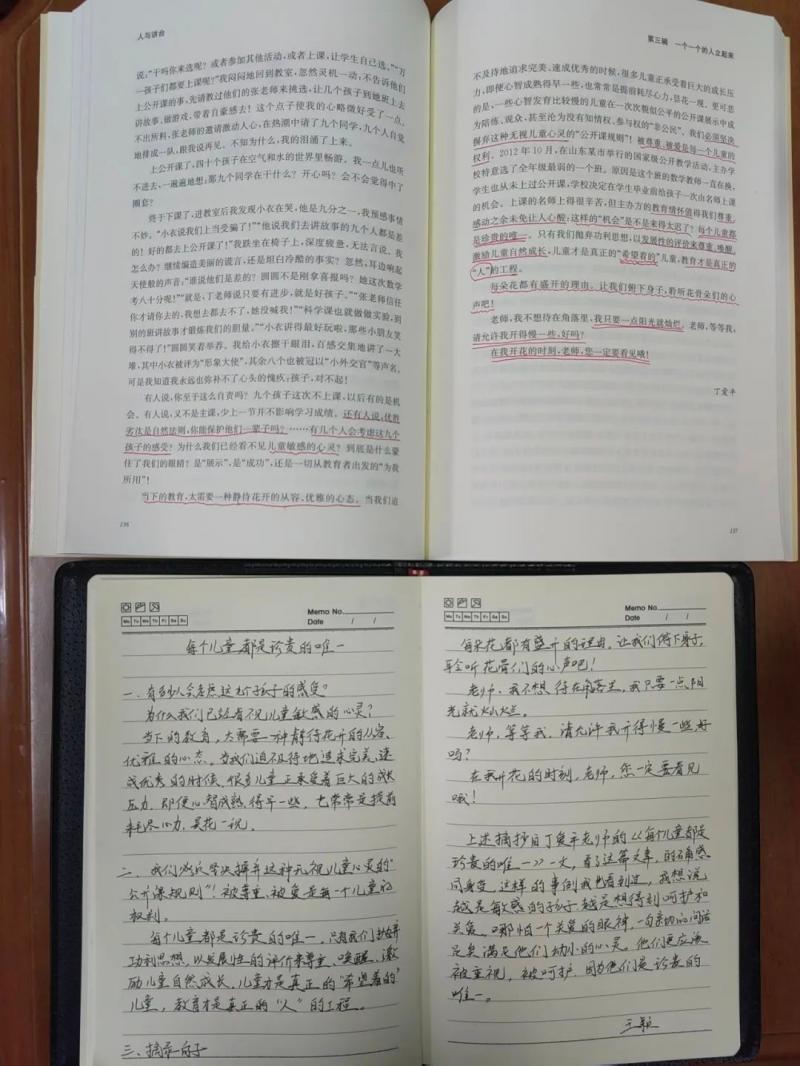 人与讲台
说:“干吗你来选呢?或者参加其他活动,或者上课,让学生自己选。”“万
一孩子们都要上课呢?”我闷闷地回到教室,忽然灵机一动:不告诉他们
上公开课的事,先请教过他们的张老师来挑选,让几个孩子到她班上去
讲故事、做游戏,带着自豪感去!这个点子使我的心略微好受了一点。
不出所料,张老师的邀请激动人心,在热潮中请了九个同学,九个人自觉
地排成一队,跟我说再见。不知为什么,我的泪涌了上来。
上公开课了,四十个孩子在空气和水的世界里畅游。我一点儿也听
不进去,一遍遍地想:那九个同学在干什么?开心吗?会不会觉得中了
圈套?
终于下课了,进教室后我发现小衣在哭,他是九分之一,我预感事情
不妙。“小衣说我们上当受骗了!”“他说我们去讲故事的九个人都是差
的!好的都去上公开课了!”我跌坐在椅子上,深度疲惫,无法言说。我
怎么办?继续编造美丽的谎言,还是坦白冷酷的事实?忽然,耳边响起
天使般的声音:“谁说他们是差的?圆圆不是刚拿喜报吗?她这次数学
考八十分呢!”“就是,丁老师说只要有进步,就是好孩子。”“张老师信任
你才请你去的,我想去都去不了,她没喊我!”“科学课也就做做实验,到
别的班讲故事才锻炼我们的胆量。”“小衣讲得最好玩啦,那些小朋友笑
得不得了!”圆圆笑着举荐。我给小衣擦干眼泪,百感交集地讲了一大
堆,其中小衣被评为“形象大使”,其余八个也被冠以“小外交官”等声名。
可是我知道我永远也弥补不了心头的愧疚:孩子,对不起!
有人说,你至于这么自责吗?九个孩子这次不上课,以后有的是机
会。有人说,又不是主课,少上一节并不影响学习成绩。还有人说:优胜
劣汰是自然法则,你能保护他们一辈子吗?……有几个人会考虑这九个
孩子的感受?为什么我们已经看不见儿童敏感的心灵?到底是什么蒙
住了我们的眼睛?是“展示”,是“成功”,还是一切从教育者出发的“为我
所用”!
当下的教育,太需要一种静待花开的从容、优雅的心态。当我们迫
136
第三辑 一个一个的人立起来
不及待地追求完美、速成优秀的时候,很多儿童正承受着巨大的成长压
力,即便心智成熟得早一些,也常常是提前耗尽心力,昙花一现。更可悲
的是,一些心智发育比较慢的儿童在一次次貌似公平的公开课展示中成
为陪练、观众,甚至沦为没有知情权、参与权的“非公民”。我们必须坚决
摒弃这种无视儿童心灵的“公开课规则”!被尊重、被爱是每一个儿童的
权利。2012年10月,在山东某市举行的国家级公开教学活动,主办学
校特意选了全年级最弱的一个班。原因是这个班的数学教师一直在换,
学生也从未上过公开课,学校决定在学生毕业前给孩子一次由名师上课
的机会。上课的名师上得很辛苦,但主办方的教育情怀值得我们尊重。
感动之余未免让人心酸:这样的“机会”是不是来得太迟了?每个儿童都
是珍贵的唯一。只有我们抛弃功利思想,以发展性的评价来尊重、唤醒、
激励儿童自然成长,儿童才是真正的“希望着的”儿童,教育才是真正的
“人”的工程。
每朵花都有盛开的理由。让我们俯下身子,聆听花骨朵们的心
声吧!
老师,我不想待在角落里,我只要一点阳光就灿烂。老师,等等我,
请允许我开得慢一些,好吗?
在我开花的时刻,老师,您一定要看见哦!
丁爱平
137
Memo No.
Mo Tu We Th Fr Sa Su
Date / /
每个儿童都是珍贵的唯一
一、有多少人会考虑这九个孩子的感受?
为什么我们已经看不见儿童敏感的心灵?
当下的教育,太需要一种静待花开的从容、
优雅的心态。当我们迫不及待地追求完美、速
成优秀的时候,很多儿童正承受着巨大的成长
压力,即便心智成熟得早一些,也常常是提前
耗尽心力,昙花一现。
二、我们必须坚决摒弃这种无视儿童心灵的“
公开课规则”!被尊重、被爱是每一个儿童的
权利。
每个儿童都是珍贵的唯一,只有我们抛弃
功利思想,以发展性的评价来尊重、唤醒、激
励儿童自然成长,儿童才是真正的“希望着的”
儿童,教育才是真正的“人”的工程。
三、摘录句子
Memo No.
Mo Tu We Th Fr Sa Su
Date / /
每朵花都有盛开的理由。让我们俯下身子,
聆听花骨们的心声吧!
老师,我不想待在角落里,我只要一点阳
光就灿烂。
老师,等等我,请允许我开得慢一些好
吗?
在我开花的时刻,老师,您一定要看见
哦!
上述摘抄自丁爱平老师的《每个儿童都是
珍贵的唯一》一文,看了这篇文章,的确感
同身受,这样的事例我也看到过,我想说
越是敏感的孩子越是想得到呵护和
关爱,哪怕一个关爱的眼神,一句亲切的问话
足矣满足他们幼小的心灵。他们更应该
被重视,被呵护,因为他们是珍贵的
唯一。